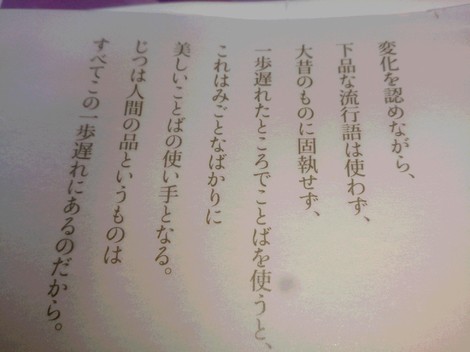 変化を認めながら、
下品な流行語は使わず、
大昔のものに固執せず、
一歩遅れたところでことばを使うと、
これはみごとなばかりに
美しいことばの使い手となる。
じつは人間の品というものは
すべてこの一歩遅れにあるのだから。